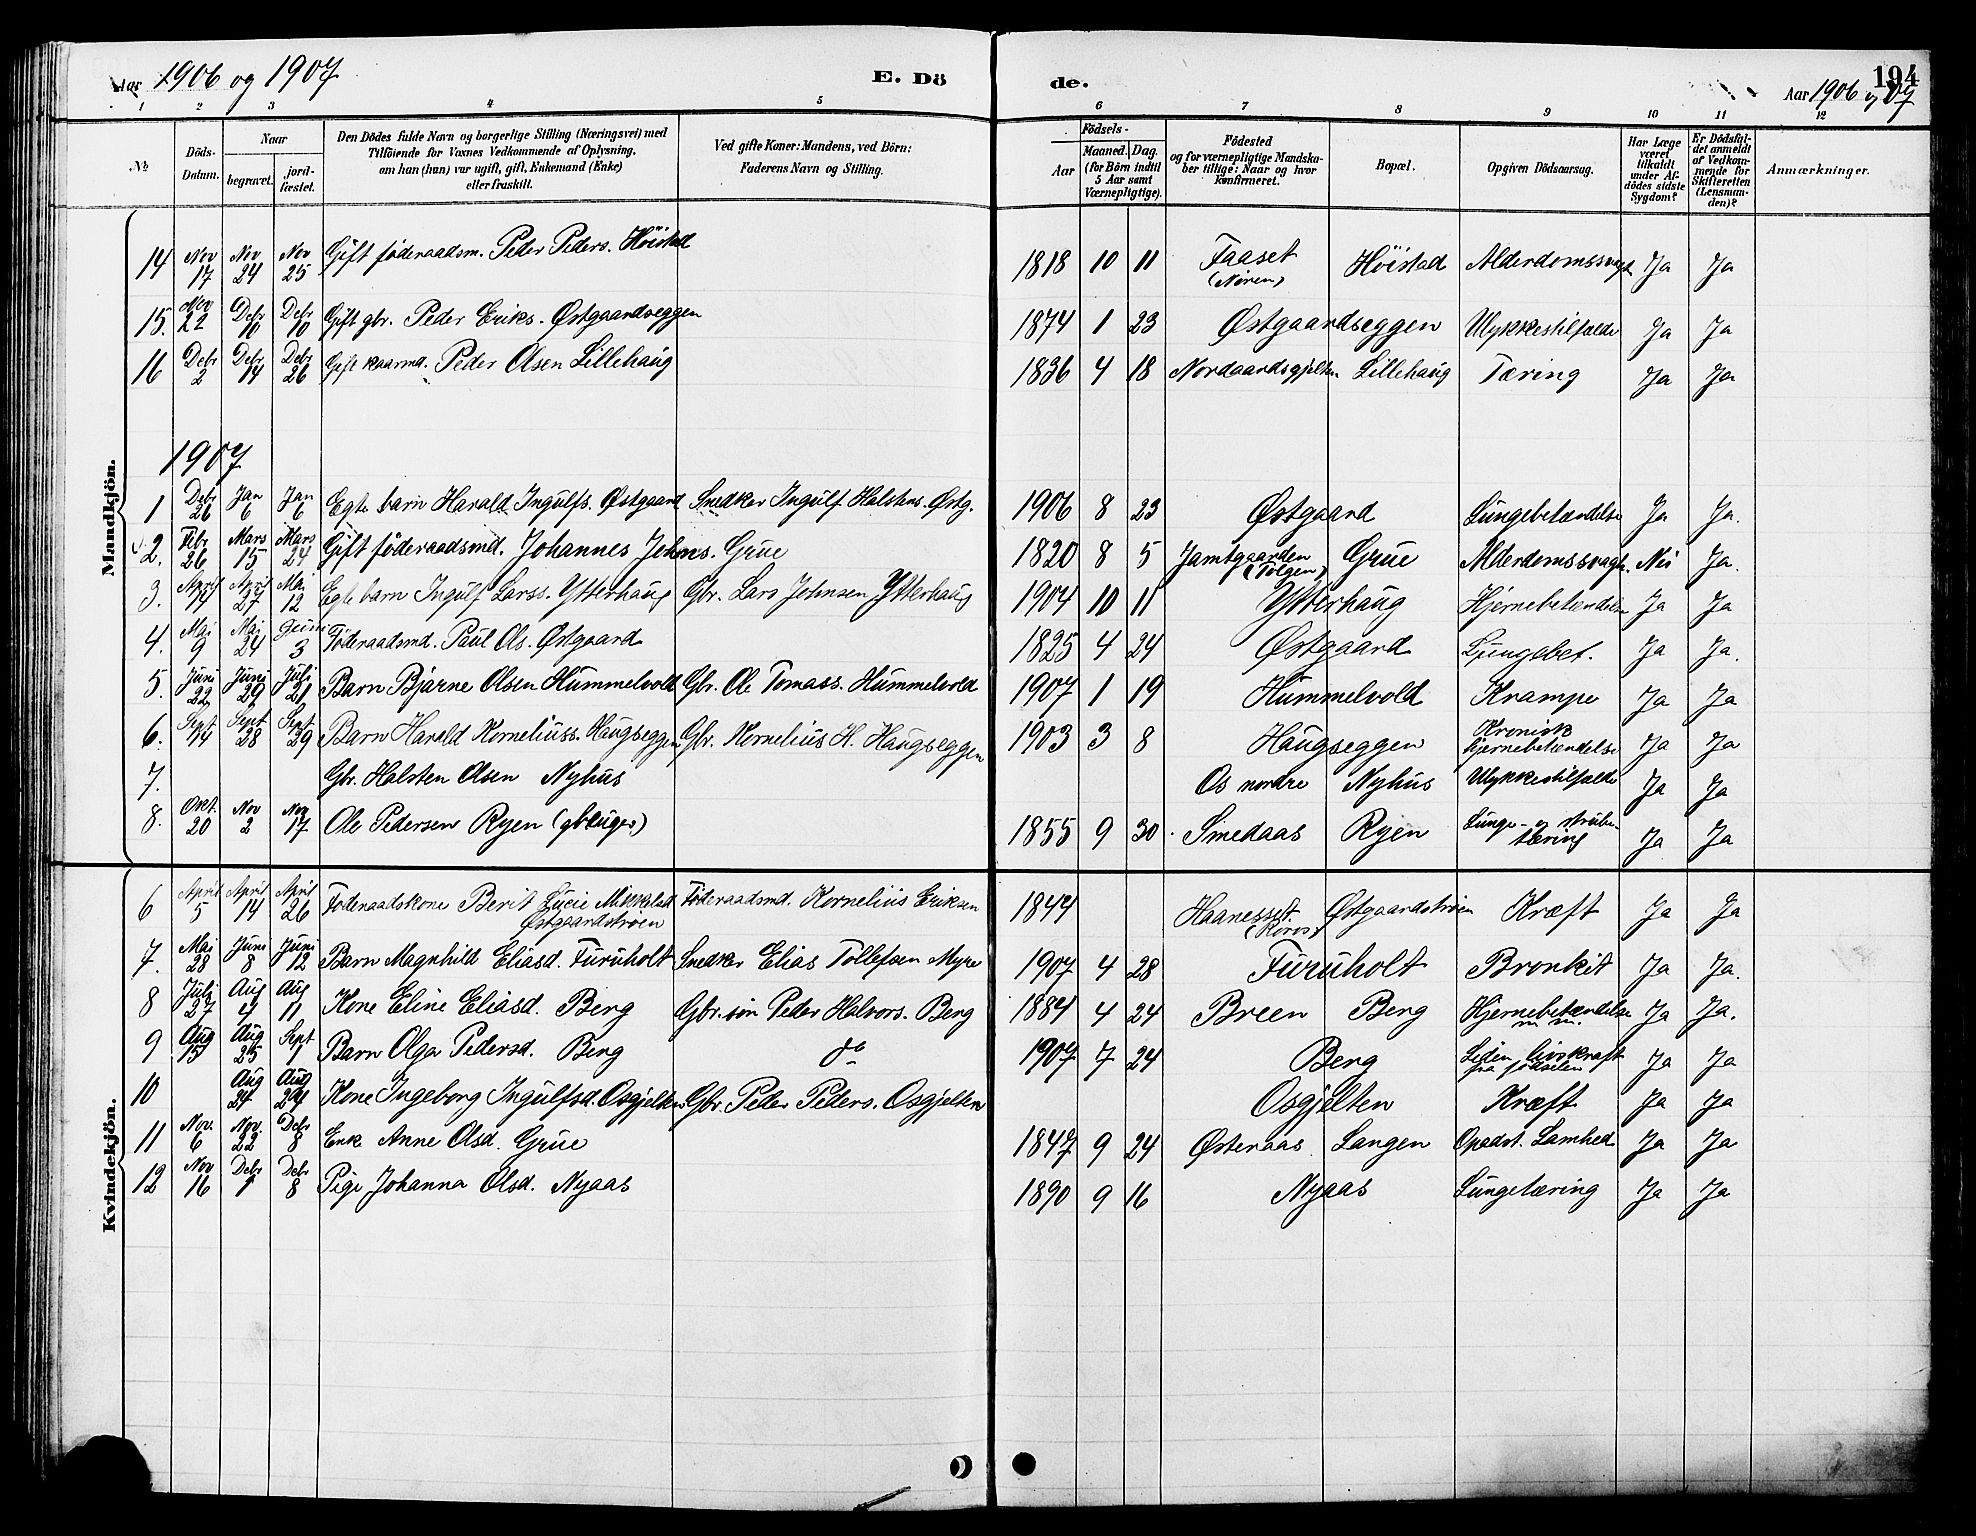 Aar 1906 og 1907 E. Dö de. 194
Aar 1906 og 07
1 2 3 4 5 6 7 8 9 10 11 12
No Döds-Datum. Naar begravet. jord-fæstet. Den Dödes fulde Navn og borgerlige Stilling (Næringsvei) med Tilföiende for Voxnes Vedkommende af Oplysning, om han (hun) var ugift, gift, Enkemand (Enke) eller fraskilt. Ved gifte Koner: Mandens, ved Börn: Faderens Navn og Stilling. Födsels- Aar Maaned. Dag. (for Börn indtil 5 Aar samt Værnepligtige). Födested og for værnepligtige Mandskaber tillige: Naar og hvor konfirmeret. Bopæl. Opgiven Dödsaarsag. Har Læge været tilkaldt under Afdödes sidste Sygdom? Er Dödsfaldet anmeldt af Vedkommende for Skifteretten (Lensmanden)? Anmærkninger.
Mandkjön.
14 Nov 17 Nov 24 Nov 25 Gift föderaadsm. Peder Peders. Höistad 1818 10 11 Faaset (Nören) Höistad Alderdomssvagt Ja Ja
15. Nov 22 Debr 10 Debr 10 Gift gbr. Peder Eriks. Østgaardseggen 1874 1 23 Østgaardseggen Ulykkestilfælde Ja Ja
16 Debr 2 Debr 14 Debr 26 Gift kaarmd. Peder Olsen Lillehaug 1836 4 18 Nordaardsgjelten Lillehaug Tæring Ja Ja
1907
1 Debr 26 Jan 6 Jan 6 Egte barn Harald Ingulfs. Østgaard Snedker Ingulf Halstens. Østg. 1906 8 23 Østgaard Lungebetændelse Ja Ja.
2. Febr 26 Mars 15 Mars 24 Gift föderaadsmd. Johannes Johns. Grue 1820 8 5 Jamtgaarden (Tolgen) Grue Alderdomssvagh. Nei Ja.
3. April 14 April 27 Mai 12 Egte barn Ingulf Larss. Ytterhaug Gbr. Lars Johnsen Ytterhaug 1904 10 11 Ytterhaug Hjernebetændelse Ja Ja
4. Mai 9 Mai 24 Juni 3 Föderaadsmd. Paul Ols. Østgaard 1825 4 24 Østgaard Lungebet. Ja Ja.
5. Juni 22 Juni 29 Juli 21 Barn Bjarne Olsen Hummelvold Gbr. Ole Tomass. Hummelvold 1907 1 19 Hummelvold Krampe Ja Ja
6. Sept 14 Sept 28 Sept 29 Barn Harald Korneliuss. Haugseggen Gbr. Kornelius H. Haugseggen 1903 3 8 Haugseggen Kronisk hjernebetændelse Ja Ja
7. Gbr. Halsten Olsen Nyhus Os nordre Nyhus Ulykkestilfælde Ja Ja
8. Okt. 20 Nov 2 Nov 17 Ole Pedersen Ryen (gbruger) 1855 9 30 Smedaas Ryen Lunge- og strubetæring Ja Ja
Kvindekjön.
6 April 5 April 14 April 26 Föderaadskone Berit Lucie Mikkelsd Østgaardströen Föderaadsmd. Kornelius Eriksen 1844 Haanesset (Röros) Østgaardströen Kræft Ja Ja
7. Mai 28 Juni 8 Juni 12 Barn Magnhild Eliasd. Furuholt Snedker Elias Tollefsen Myre 1907 4 28 Furuholt Bronkit Ja Ja.
8 Juli 27 Aug 4 Aug 11 Kone Eline Eliasd. Berg Gbr. sön Peder Halvors. Berg 1884 4 24 Breen Berg Hjernebetændelse m. m. Ja Ja.
9 Aug 15 Aug 25 Sept 1 Barn Olga Pedersd. Berg do 1907 7 24 Berg Liden livskraft fra födselen Ja Ja
10 Aug 24 Aug 24 Kone Ingeborg Ingulfsd. Osgjelten Gbr. Peder Peders. Osgjelten Osgjelten Kræft Ja Ja
11 Nov. 6 Nov. 22 Debr 8 Enk Anne Olsd. Grue 1847 9 24 Østeraas Langen Opadst. Lamhed Ja Ja
12 Nov 16 Debr 1 Debr 8 Pige Johanna Olsd. Nyaas 1890 9 16 Nyaas Lungetæring Ja Ja